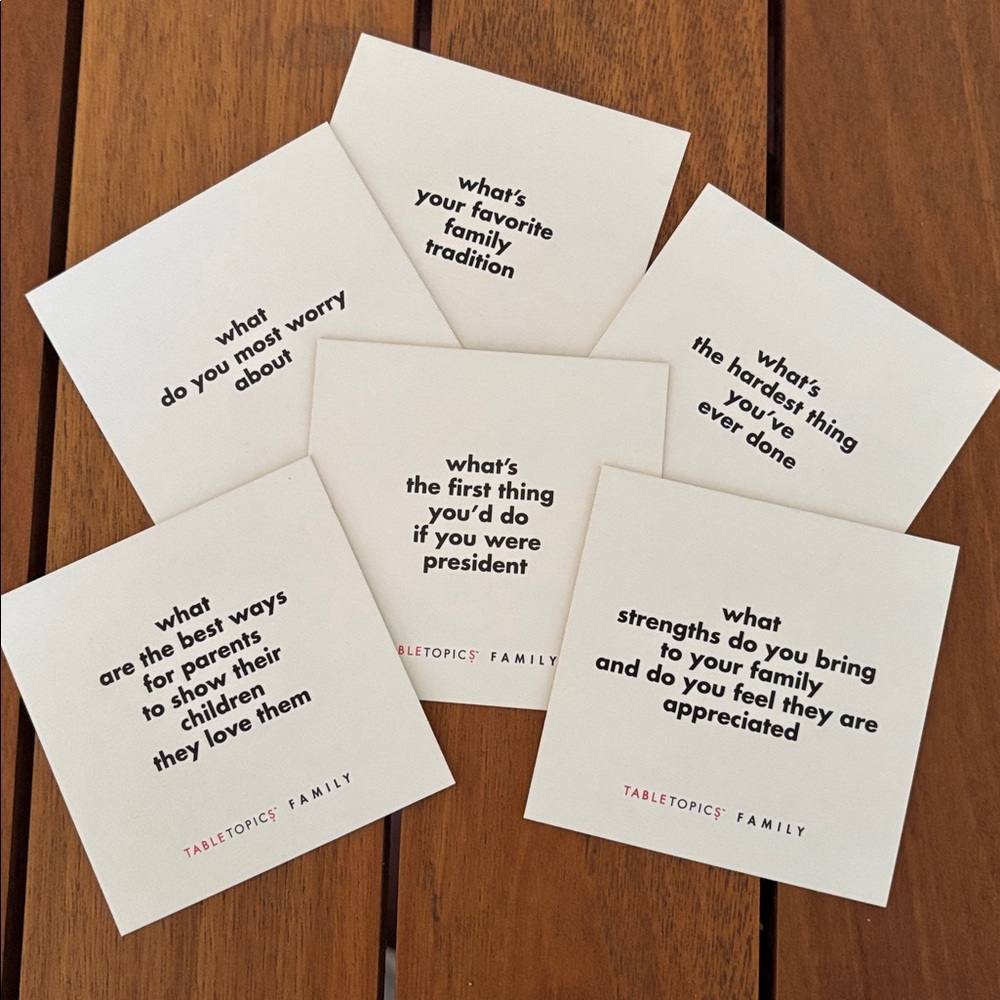 what's
your favorite
family
tradition
what
do you most worry
about
what's
the hardest thing
you've
ever done
what's
the first thing
you'd do
if you were
president
BLETOPICS™ FAMILY
what
are the best ways
for parents
to show their
children
they love them
TABLETOPICS™ FAMILY
what
strengths do you bring
to your family
and do you feel they are
appreciated
TABLETOPICS™ FAMILY